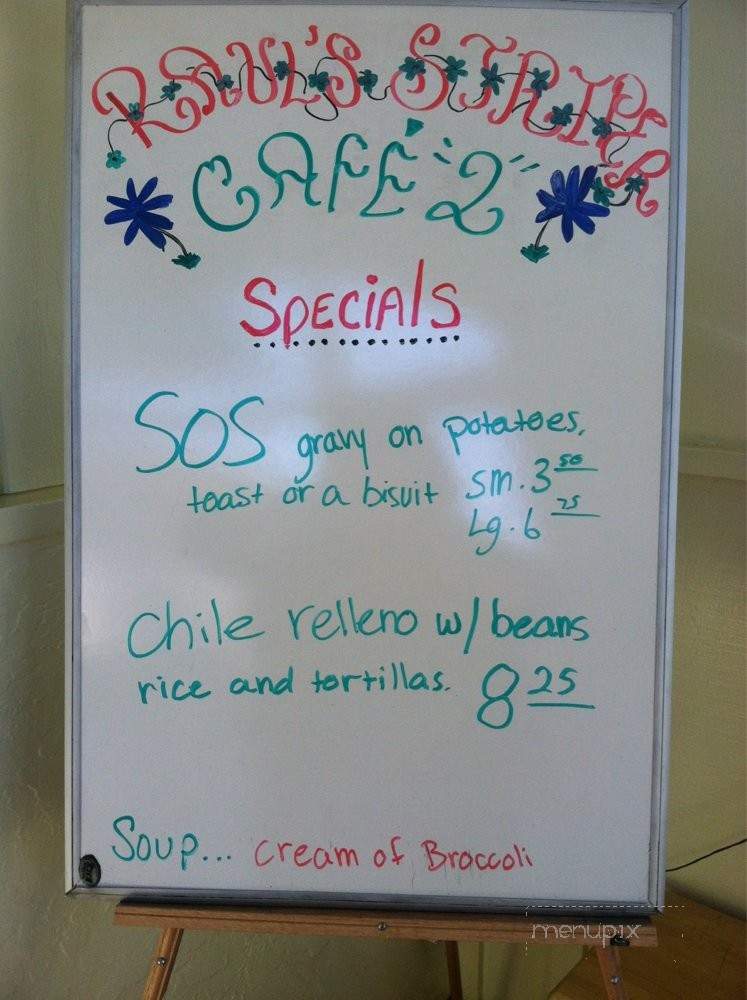 RAUL'S STRIPER
CAFÉ "2"
Specials
SOS gravy on potatoes,
toast or a bisuit sm. 3 50
Lg. 6 75
Chile relleno w/ beans
rice and tortillas. 8 25
Soup... Cream of Broccoli
menupix